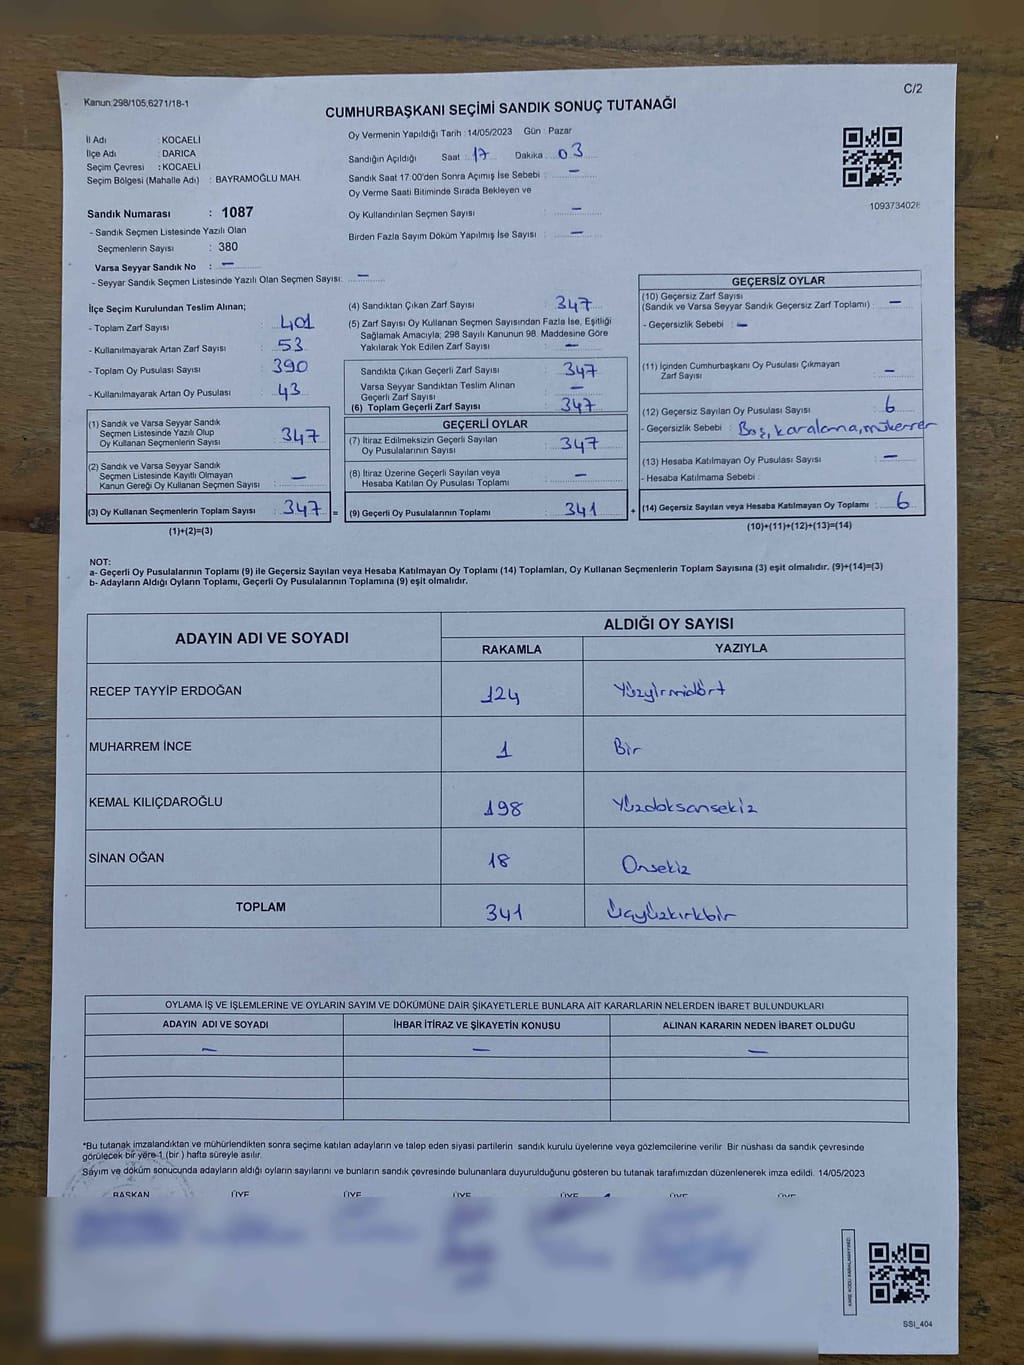 Kanun:298/105;6271/18-1
C/2
CUMHURBAŞKANI SEÇİMİ SANDIK SONUÇ TUTANAĞI
İl Adı : KOCAELİ
İlçe Adı : DARICA
Seçim Çevresi : KOCAELİ
Seçim Bölgesi (Mahalle Adı) : BAYRAMOĞLU MAH.
Sandık Numarası : 1087
- Sandık Seçmen Listesinde Yazılı Olan
Seçmenlerin Sayısı : 380
Varsa Seyyar Sandık No : –
- Seyyar Sandık Seçmen Listesinde Yazılı Olan Seçmen Sayısı: –
Oy Vermenin Yapıldığı Tarih : 14/05/2023 Gün : Pazar
Sandığın Açıldığı Saat : 17 Dakika : 03
Sandık Saat 17:00'den Sonra Açımış İse Sebebi : –
Oy Verme Saati Bitiminde Sırada Bekleyen ve
Oy Kullandırılan Seçmen Sayısı : –
Birden Fazla Sayım Döküm Yapılmış İse Sayısı : –
1093734028
İlçe Seçim Kurulundan Teslim Alınan;
- Toplam Zarf Sayısı : 401
- Kullanılmayarak Artan Zarf Sayısı : 53
- Toplam Oy Pusulası Sayısı : 390
- Kullanılmayarak Artan Oy Pusulası : 43
(1) Sandık ve Varsa Seyyar Sandık
Seçmen Listesinde Yazılı Olup
Oy Kullanan Seçmenlerin Sayısı : 347
(2) Sandık ve Varsa Seyyar Sandık
Seçmen Listesinde Kayıtlı Olmayan
Kanun Gereği Oy Kullanan Seçmen Sayısı : –
(3) Oy Kullanan Seçmenlerin Toplam Sayısı : 347 =
(1)+(2)=(3)
(4) Sandıktan Çıkan Zarf Sayısı : 347
(5) Zarf Sayısı Oy Kullanan Seçmen Sayısından Fazla İse, Eşitliği
Sağlamak Amacıyla; 298 Sayılı Kanunun 98. Maddesine Göre
Yakılarak Yok Edilen Zarf Sayısı : –
Sandıkta Çıkan Geçerli Zarf Sayısı : 347
Varsa Seyyar Sandıktan Teslim Alınan
Geçerli Zarf Sayısı : –
(6) Toplam Geçerli Zarf Sayısı : 347
GEÇERLİ OYLAR
(7) İtiraz Edilmeksizin Geçerli Sayılan
Oy Pusulalarının Sayısı : 347
(8) İtiraz Üzerine Geçerli Sayılan veya
Hesaba Katılan Oy Pusulası Toplamı : –
(9) Geçerli Oy Pusulalarının Toplamı : 341 +
GEÇERSİZ OYLAR
(10) Geçersiz Zarf Sayısı
(Sandık ve Varsa Seyyar Sandık Geçersiz Zarf Toplamı) : –
- Geçersizlik Sebebi : –
(11) İçinden Cumhurbaşkanı Oy Pusulası Çıkmayan
Zarf Sayısı : –
(12) Geçersiz Sayılan Oy Pusulası Sayısı : 6
- Geçersizlik Sebebi : Boş, karalama, mükerrer
(13) Hesaba Katılmayan Oy Pusulası Sayısı : –
- Hesaba Katılmama Sebebi :
(14) Geçersiz Sayılan veya Hesaba Katılmayan Oy Toplamı : 6
(10)+(11)+(12)+(13)=(14)
NOT:
a- Geçerli Oy Pusulalarının Toplamı (9) ile Geçersiz Sayılan veya Hesaba Katılmayan Oy Toplamı (14) Toplamları, Oy Kullanan Seçmenlerin Toplam Sayısına (3) eşit olmalıdır. (9)+(14)=(3)
b- Adayların Aldığı Oyların Toplamı, Geçerli Oy Pusulalarının Toplamına (9) eşit olmalıdır.
ADAYIN ADI VE SOYADI
ALDIĞI OY SAYISI
RAKAMLA YAZIYLA
RECEP TAYYİP ERDOĞAN 124 Yüzyirmidört
MUHARREM İNCE 1 Bir
KEMAL KILIÇDAROĞLU 198 Yüzdoksansekiz
SİNAN OĞAN 18 Onsekiz
TOPLAM 341 Üçyüzkırkbir
OYLAMA İŞ VE İŞLEMLERİNE VE OYLARIN SAYIM VE DÖKÜMÜNE DAİR ŞİKAYETLERLE BUNLARA AİT KARARLARIN NELERDEN İBARET BULUNDUKLARI
ADAYIN ADI VE SOYADI İHBAR İTİRAZ VE ŞİKAYETİN KONUSU ALINAN KARARIN NEDEN İBARET OLDUĞU
– – –
*Bu tutanak imzalandıktan ve mühürlendikten sonra seçime katılan adayların ve talep eden siyasi partilerin sandık kurulu üyelerine veya gözlemcilerine verilir. Bir nüshası da sandık çevresinde
görülecek bir yere 1 (bir ) hafta süreyle asılır.
Sayım ve döküm sonucunda adayların aldığı oyların sayılarını ve bunların sandık çevresinde bulunanlara duyurulduğunu gösteren bu tutanak tarafımızdan düzenlenerek imza edildi. 14/05/2023
BAŞKAN ÜYE ÜYE ÜYE ÜYE ÜYE ÜYE
SSI_404